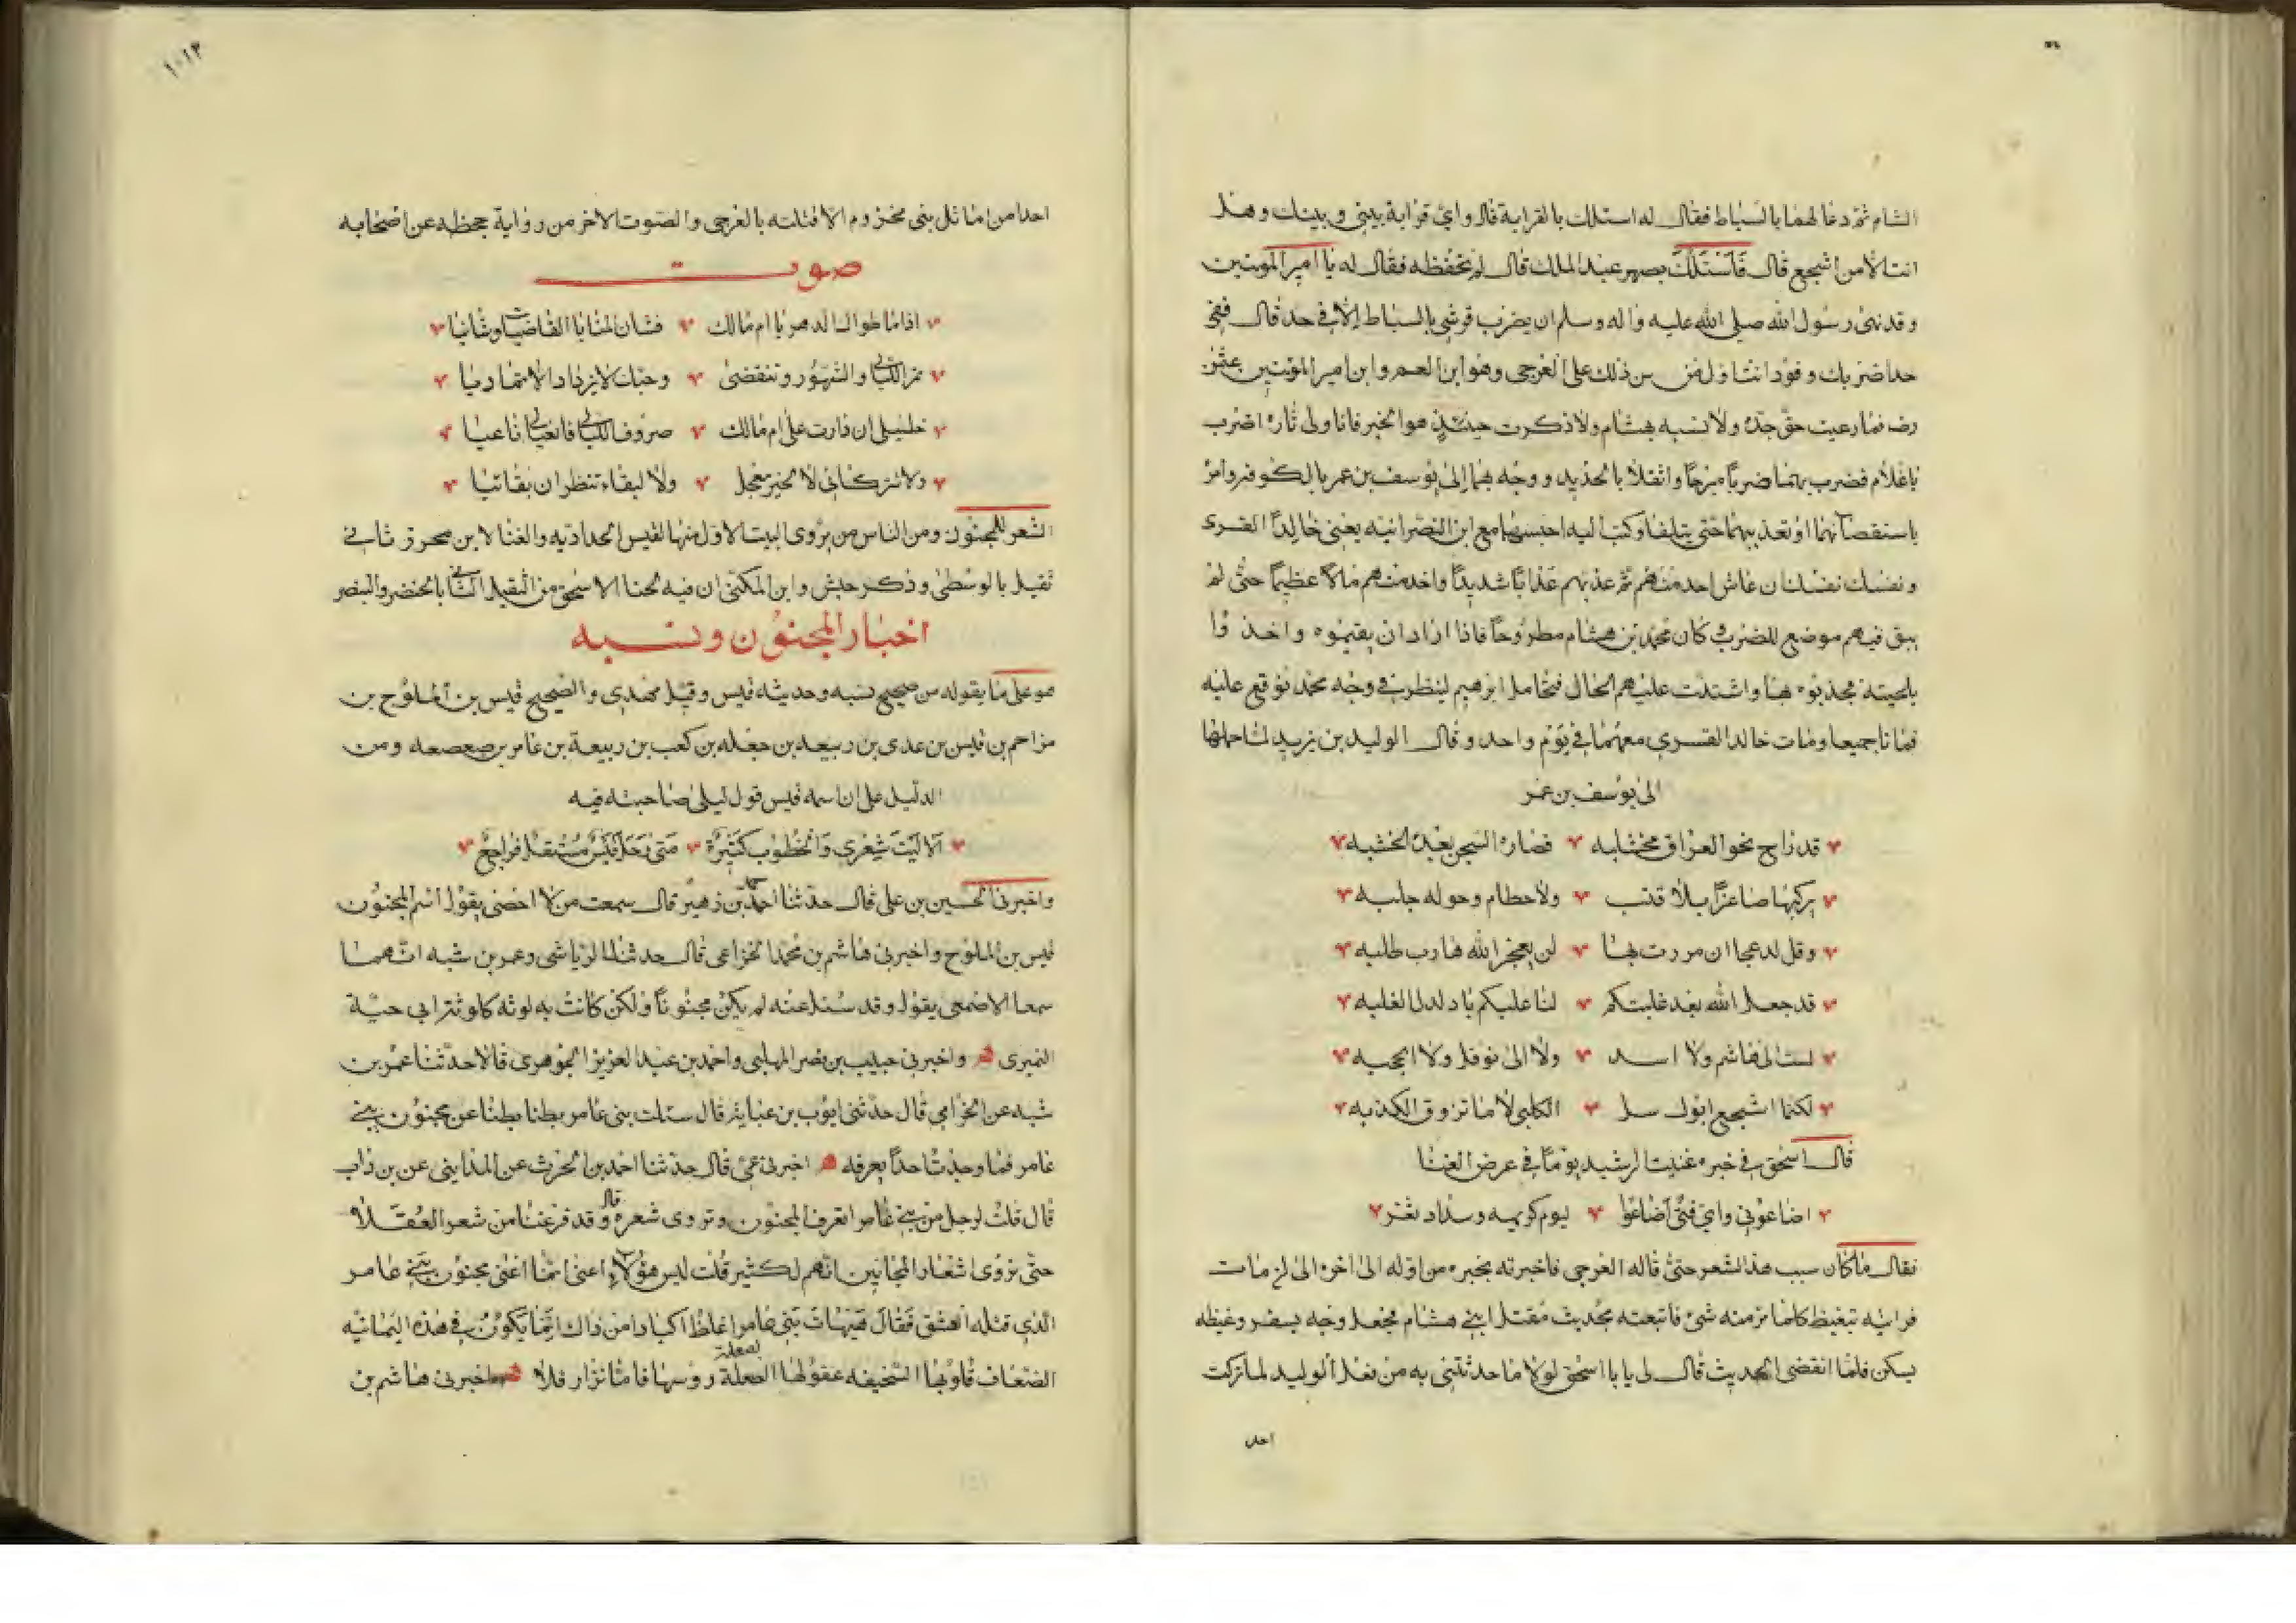 الشام ثم دعا لهما بالسياط فقال له اسئلك بالقرابة قال واي قرابة بيني وبينك وهل
انت الا من اشجع قال فاسئلك بصهر عبد الملك قال لم تحفظه فقال له يا امير المومنين
وقد نهى رسول الله صلى الله عليه واله وسلم ان يضرب قرشي بالسياط الا في حد قال ففي
حد اضربك وقود انت اول من سن ذلك على العرجى وهو ابن العم وابن امير المومنين عثمن
رضه فما رعيت حق جده ولا نسبه بهشام ولا ذكرت حينئذ هو الخبر فانا ولى ثاره اضرب
يا غلام فضرب بهما ضربا مبرحا واثقلا بالحديد ووجه بهما الى يوسف بن عمر بالكوفه وامر
باستقصآئهما او تعذيبهما حتى يتلفا وكتب اليه احبسهما مع ابن النصرانيه يعني خالدا القسرى
ونفسك نفسك ان عاش احد منهم ثم عذبهم عذابا شديدا واخذ منهم مالا عظيما حتى لم
يبق فيهم موضع للضرب وكان محمد بن هشام مطروحا فاذا ارادوا ان يقيموه واخذوا
بلحيته فجذبوه بها واشتدت عليهم الحال فتحامل ابرهيم لينظر في وجه محمد فوقع عليه
فماتا جميعا ومات خالد القسري معهما في يوم واحد وقال الوليد بن يزيد لما حملهما
الى يوسف بن عمر
قد راح نحو العراق مخشلبه قصاره السجن بعده الخشبه
يركبها صاغرا بلا قتب ولا خطام وحوله جلبه
وقل لدعجا ان مررت بها لن يعجز الله هارب طلبه
قد جعل الله بعد غلبتكم لنا عليكم يا دلدل الغلبه
لست الى هاشم ولا اسد ولا الى نوفل ولا الحجبه
لكنما اشجع ابوك سل الكلبى لا ما تزوق الكذبه
قال اسحق في خبره غنيت الرشيد يوما في عرض الغنا
اضاعوني واي فتى اضاعوا ليوم كريهه وسداد ثغر
فقال ما كان سبب هذا الشعر حتى قاله العرجى فاخبرته بخبره من اوله الى اخره الى ان مات
فرايته تيغيظ كلما مر منه شئ فاتبعته بحديث مقتل ابني هشام فجعل وجه يسفر وغيظه
يسكن فلما انقضى الحديث قال لى يابا اسحق لولا ما حدثتنى به من فعل الوليد لما تركت
احدا
١٠١٣
احدا من اماثل بنى مخزوم الا قتلته بالعرجى والصوت الاخر من رواية جحظه عن اصحابه
صوت
اذا ما طوال الدهر يا ام مالك فشان المنايا القاضيات وشانيا
تمر الليالى والشهور وتنقضى وحبك لا يزداد الا تماديا
خليلى ان دارت على ام مالك صروف الليالى فابغيا لى ناعيا
ولا تتركانى لا لخير معجل ولا لبقاء تنظران بقائيا
الشعر للمجنون ومن الناس من يروى البيت الاول منها لقيس الحداديه والغنا لابن محرز ثانى
ثقيل بالوسطى وذكر حبش وابن المكى ان فيه لحنا لاسحق من الثقيل الثانى بالخنصر والبنصر
اخبار المجنون ونسبه
هو على ما يقوله من صحح نسبه وحديثه قيس وقيل مهدى والصحيح قيس بن الملوح بن
مزاحم بن قيس بن عدى بن ربيعه بن جعله بن كعب بن ربيعة بن عامر بن صعصعه ومن
الدليل على ان اسمه قيس قول ليلى صاحبته فيه
الا ليت شعرى والخطوب كثيرة متى رحل قيس مستقل فراجع
واخبرنى الحسين بن على قال حدثنا احمد بن زهير قال سمعت من لا احصى يقول اسم المجنون
قيس بن الملوح واخبرنى هاشم بن محمد الخزاعى قال حدثنا الرياشى وعمر بن شبه انهما
سمعا الاصمعى يقول وقد سئل عنه لم يكن مجنونا ولكن كانت به لوثه كلوثة ابى حية
النميرى واخبرنى حبيب بن نصر المهلبى واحمد بن عبد العزيز الجوهرى قالا حدثنا عمر بن
شبه عن الخزامى قال حدثنى ايوب بن عبايه قال سئلت بنى عامر بطنا بطنا عن مجنون بنى
عامر فما وجدت احدا يعرفه اخبرنى عمى قال حدثنا احمد بن الحرث عن المداينى عن بن داب
قال قلت لرجل من بنى عامر اتعرف المجنون وتروى شعره قال وقد فرغنا من شعر العقلا
حتى نروى اشعار المجانين انهم لكثير قلت ليس هؤلاء اعنى انما اعنى مجنون بنى عامر
الذى قتله العشق فقال هيهات بنى عامر اغلظ اكبادا من ذاك انما يكون في هذه اليمانيه
الضعاف قلوبها السخيفه عقولها الصعلة رؤسها فاما نزار فلا اخبرنى هاشم بن